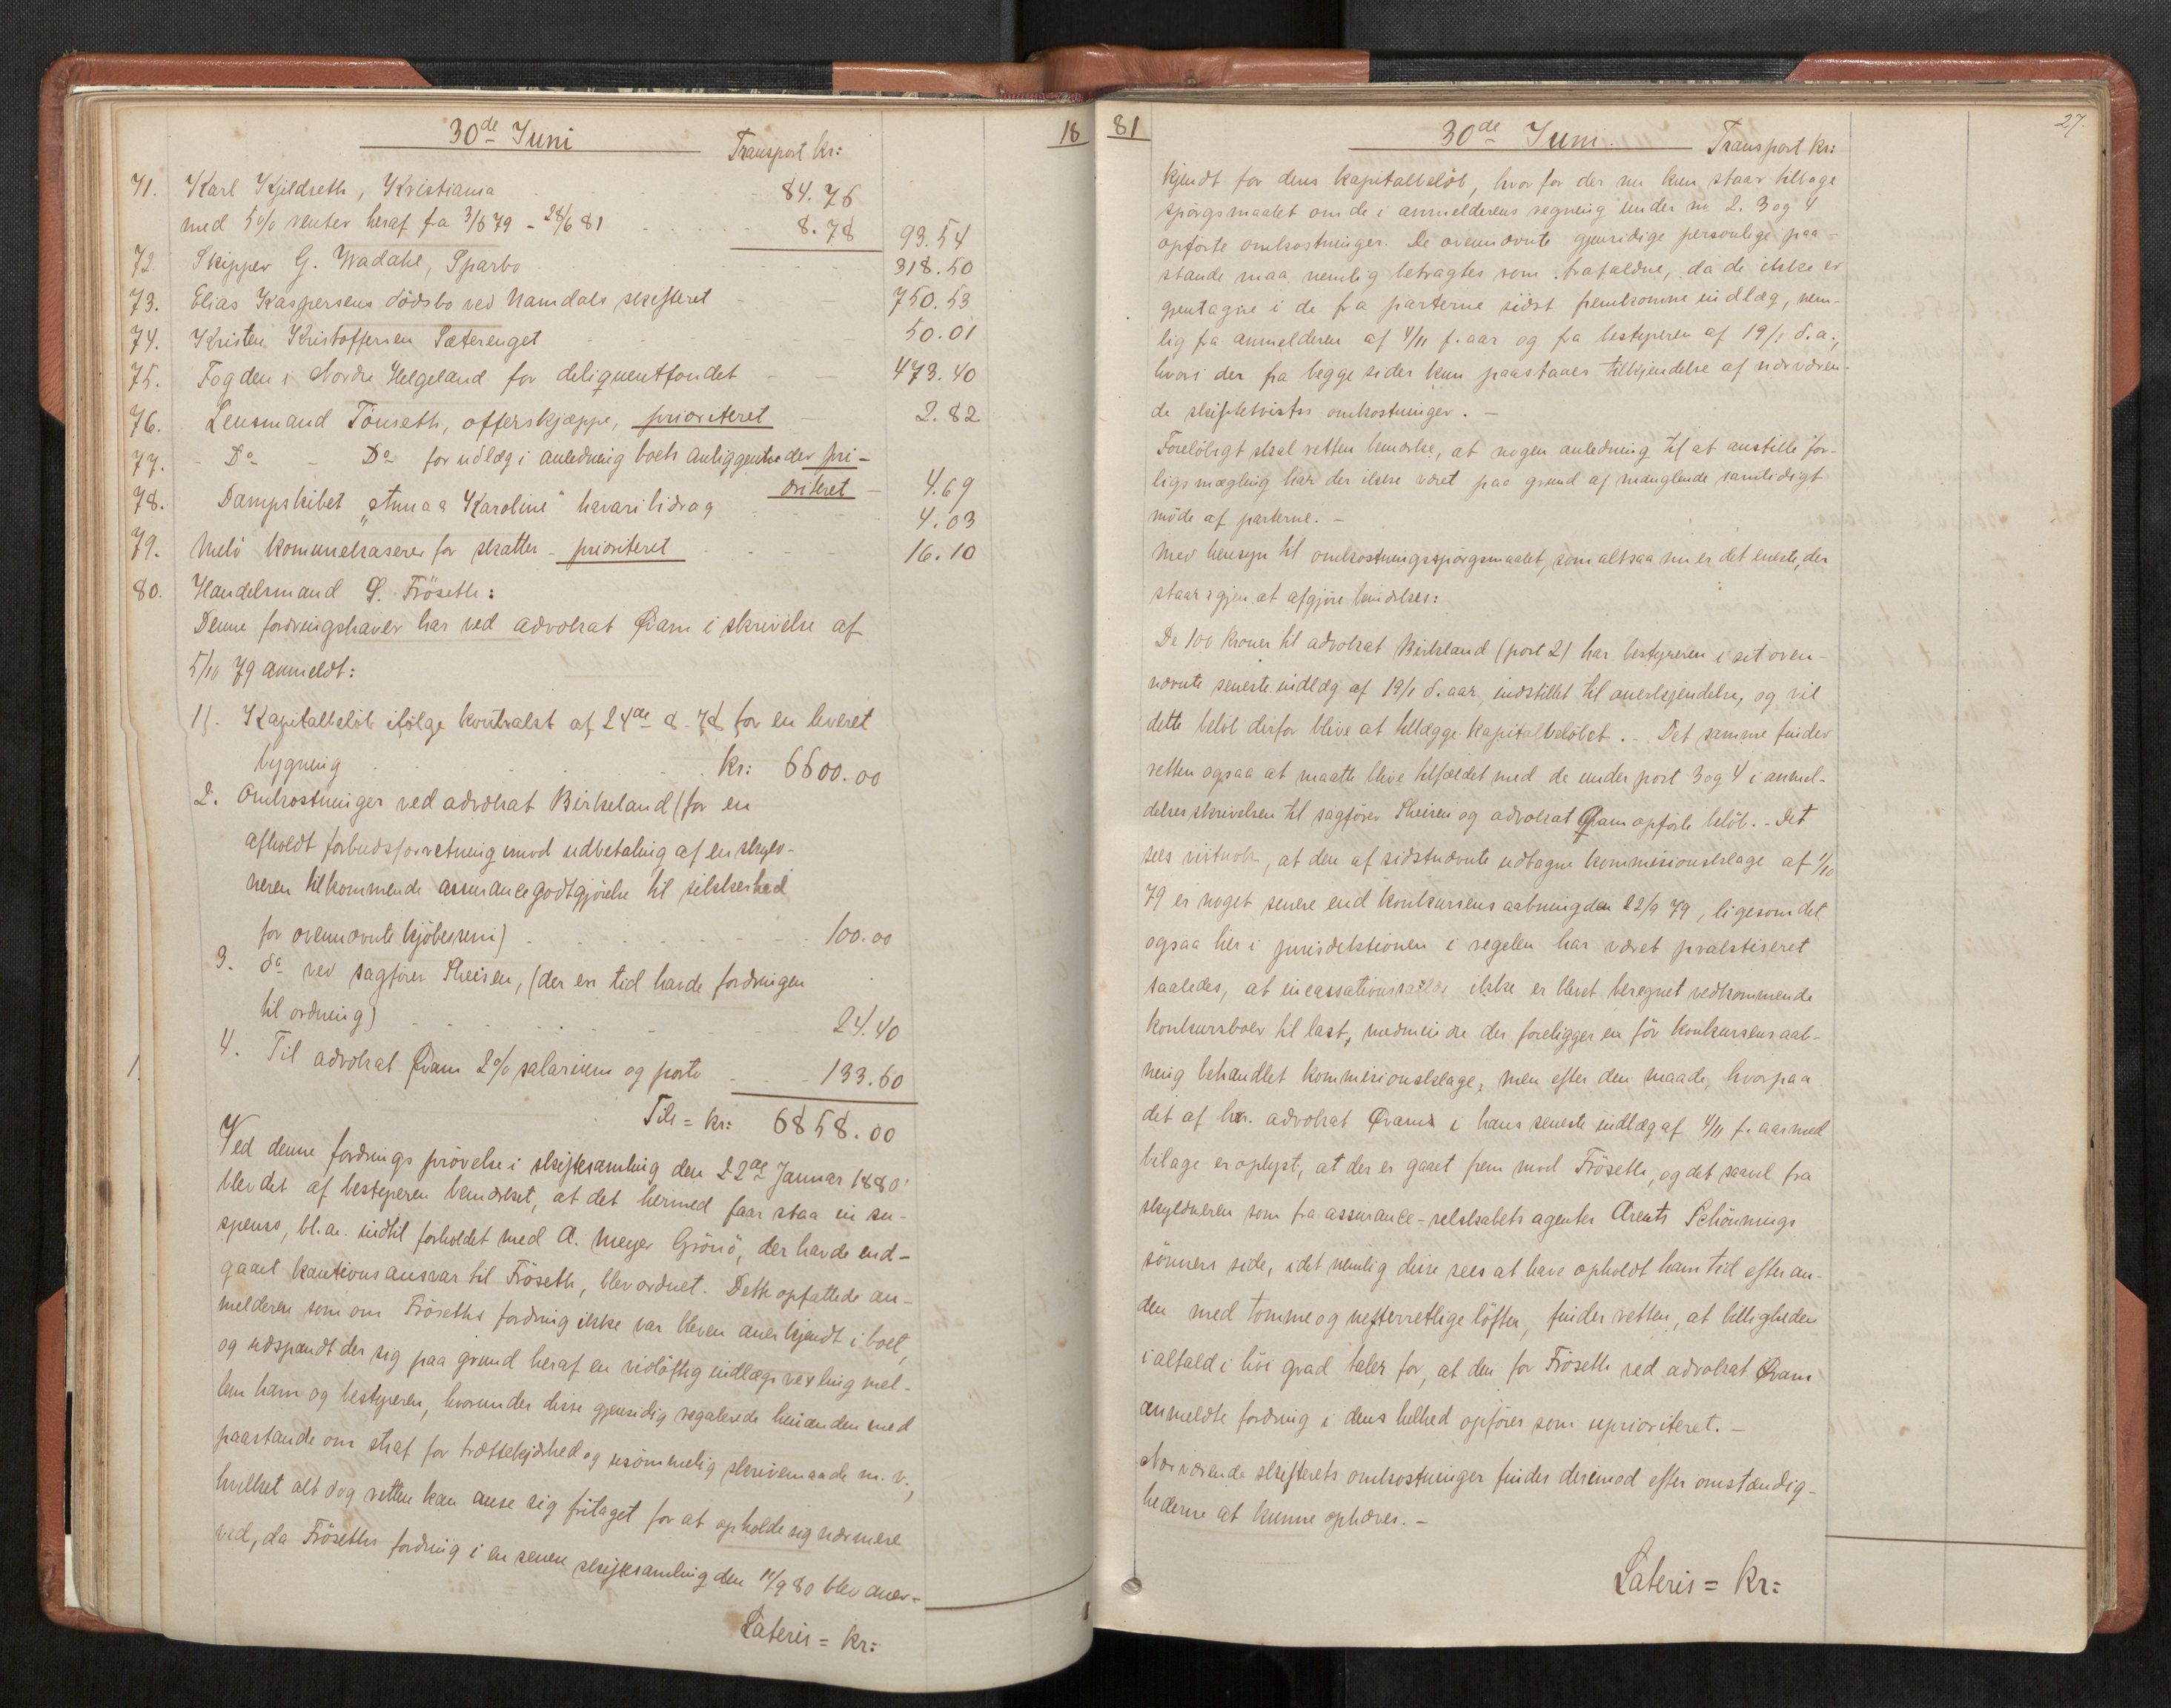 30de Juni 18
Transport kr:
71. Karl Kjeldseth, Kristiania 84.76
med 5% renter heraf fra 3/6 79 - 28/6 81 8.78 93.54
72. Skipper G. Wadahl, Sparbo 318.50
73. Elias Kaspersens dødsbo ved Namdals skifteret 750.53
74. Kristen Kristoffersen Sæterenget 50.01
75. Fogden i Nordre Helgeland for deliquentfondet 473.40
76. Lensmand Tönseth, offerskjæppe, prioriteret 2.82
77. Do Do for udlæg i anledning boets anliggender pri-
oriteret 4.69
78. Dampskibet „Anna Karoline" havaribidrag 4.03
79. Melö kommunekasserer for skatter - prioriteret 16.10
80. Handelsmand S. Fröseth:
Denne fordringshaver har ved advokat Qvam i skrivelse af
5/10 79 anmeldt:
1). Kapitalbelöb ifölge kontrakt af 24de 8 - 78 for en leveret
bygning kr: 6600.00
2. Omkostninger ved advokat Birkeland (for en
afholdt forbudsforretning imod udbetaling af en skyld-
neren tilkommende assurancegodtgjörelse til sikkerhed
for ovennævnte kjöbesum) 100.00
3. do ved sagförer Theisen, (der en tid havde fordringen
til ordning) 24.40
4. Til advokat Qvam 2% salarium og porto 133.60
Tils = kr: 6858.00
Ved denne fordrings prövelse i skiftesamling den 22de Januar 1880
blev det af bestyreren bemærket, at det hermed faar staa in su-
spenso, bl.a. indtil forholdet med A. Meyer Grönö, der havde ind-
gaaet kautionsansvar til Fröseth, blev ordnet. Dette opfattede an-
melderen som om Fröseths fordring ikke var bleven anerkjendt i boet,
og udspandt der sig paa grund heraf en vidlöftig indlægsvexling mel-
lem ham og bestyreren, hvorunder disse gjensidig regalerede hinanden med
paastande om straf for trættekjærhed og usömmelig skrivemaade m. v.,
hvilket alt dog retten kan anse sig fritaget for at opholde sig nærmere
ved, da Fröseths fordring i en senere skiftesamling den 11/9 80 blev aner-
Lateris = kr:
81 30de Juni. 27.
Transport kr:
kjendt for dens kapitalbelöb, hvorfor der nu kun staar tilbage
spörgsmaalet om de i anmelderens regning under no 2. 3 og 4
opförte omkostninger. De ovennævnte gjensidige personlige paa-
stande maa nemlig betragtes som frafaldne, da de ikke er
gjentagne i de fra parterne sidst fremkomne indlæg, nem-
lig fra anmelderen af 4/11 f. aar og fra bestyreren af 19/1 d.a.,
hvori der fra begge sider kun paastaaes tilkjendelse af nærværen-
de skiftetvists omkostninger. -
Forelöbigt skal retten bemærke, at nogen anledning til at anstille for-
ligsmægling har der ikke været paa grund af manglende samtidigt
möde af parterne. -
Med hensyn til omkostningsspörgsmaalet, som altsaa nu er det eneste, der
staar igjen at afgjöre bemærkes:
De 100 kroner til advokat Birkeland (post 2) har bestyreren i sit oven-
nævnte seneste indlæg af 19/1 d. aar, indstillet til anerkjendelse, og vil
dette belöb derfor blive at tillægge kapitalbelöbet. - Det samme finder
retten ogsaa at maatte blive tilfældet med de under post 3 og 4 i anmel-
delsesskrivelsen til sagförer Theisen og advokat Qvam opförte belöb. - Det
sees vistnok, at den af sidstnævnte udtagne kommisionsklage af 1/10
79 er noget senere end konkursens aabning den 22/9 79, ligesom det
ogsaa her i jurisdiktionen i regelen har været praktiseret
saaledes, at incassations ikke er blevet beregnet vedkommende
konkursboer til last, medmindre der foreligger en för konkursens aab-
ning behandlet kommisionsklage, men efter den maade, hvorpaa
det af hr. advokat Qvams i hans seneste indlæg af 4/11 f. aar med
bilage er oplyst, at der er gaaet frem mod Fröseth, og det saavel fra
skyldneren som fra assurance-selskabets agenter Arents Schönnings
sönners side, idet nemlig disse sees at have opholdt ham tid efter an-
den med tomme og uefterretlige löfter, finder retten, at billigheden
ialfald i höi grad taler for, at den for Fröseth ved advokat Qvam
anmeldte fordring i dens helhed opföres som uprioriteret. -
Nærværende skifterets omkostninger findes derimod efter omstændig-
hederne at kunne ophæves. -
Lateris = kr: